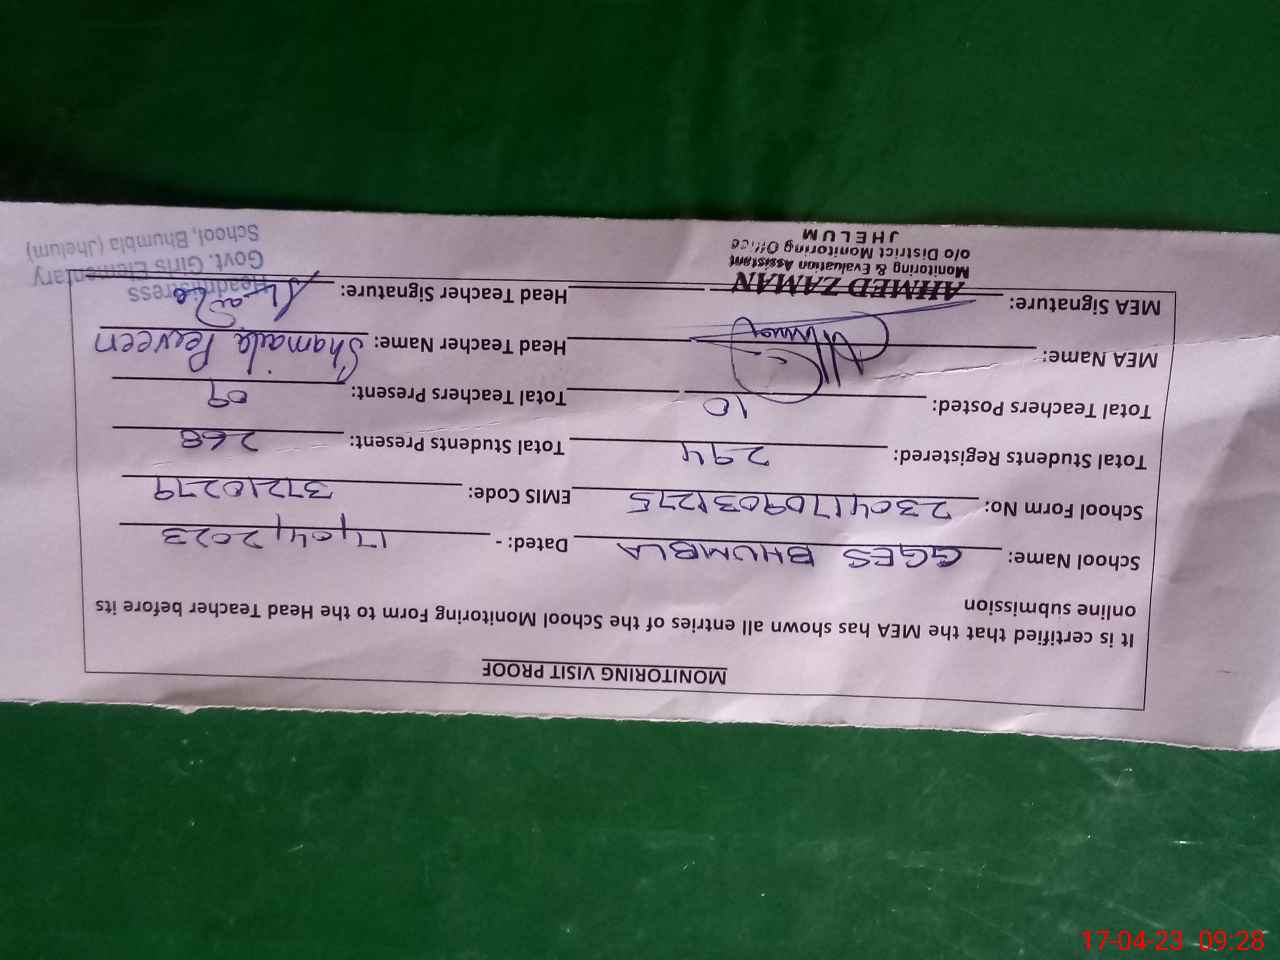 MONITORING VISIT PROOF
It is certified that the MEA has shown all entries of the School Monitoring Form to the Head Teacher before its
online submission
School Name: GGES BHUMBLA Dated: - 17/04/2023
School Form No: 23041709031275 EMIS Code: 37210279
Total Students Registered: 294 Total Students Present: 268
Total Teachers Posted: 10 Total Teachers Present: 09
MEA Name: Head Teacher Name: Shamaila Perveen
MEA Signature: Head Teacher Signature:
AHMED ZAMAN
Monitoring & Evaluation Assistant
o/o District Monitoring Office
JHELUM
Headmistress
Govt. Girls Elementary
School, Bhumbla (Jhelum)
17-04-23 09:28